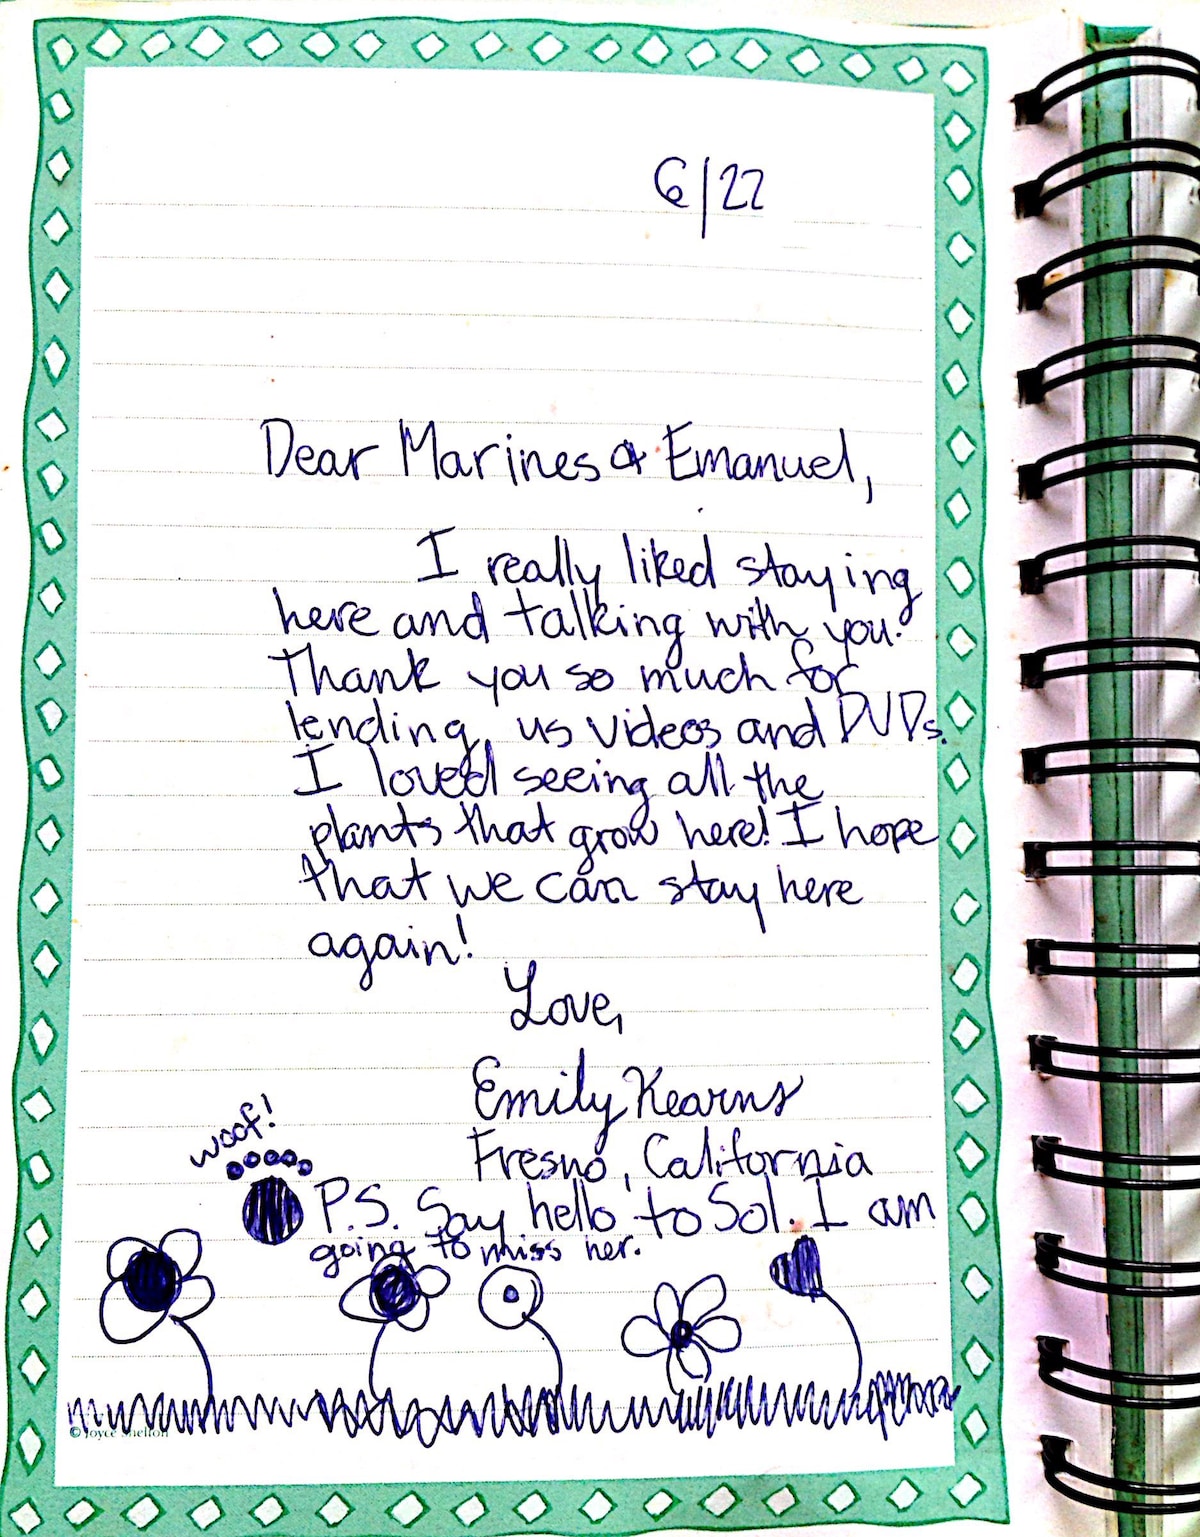 6/22
Dear Marines & Emanuel,
I really liked staying
here and talking with you.
Thank you so much for
lending us videos and DVDs.
I loved seeing all the
plants that grow here! I hope
that we can stay here
again!
Love,
Emily Kearns
Fresno, California
woof!
P.S. Say hello to Sol. I am
going to miss her.
© Joyce Shelton